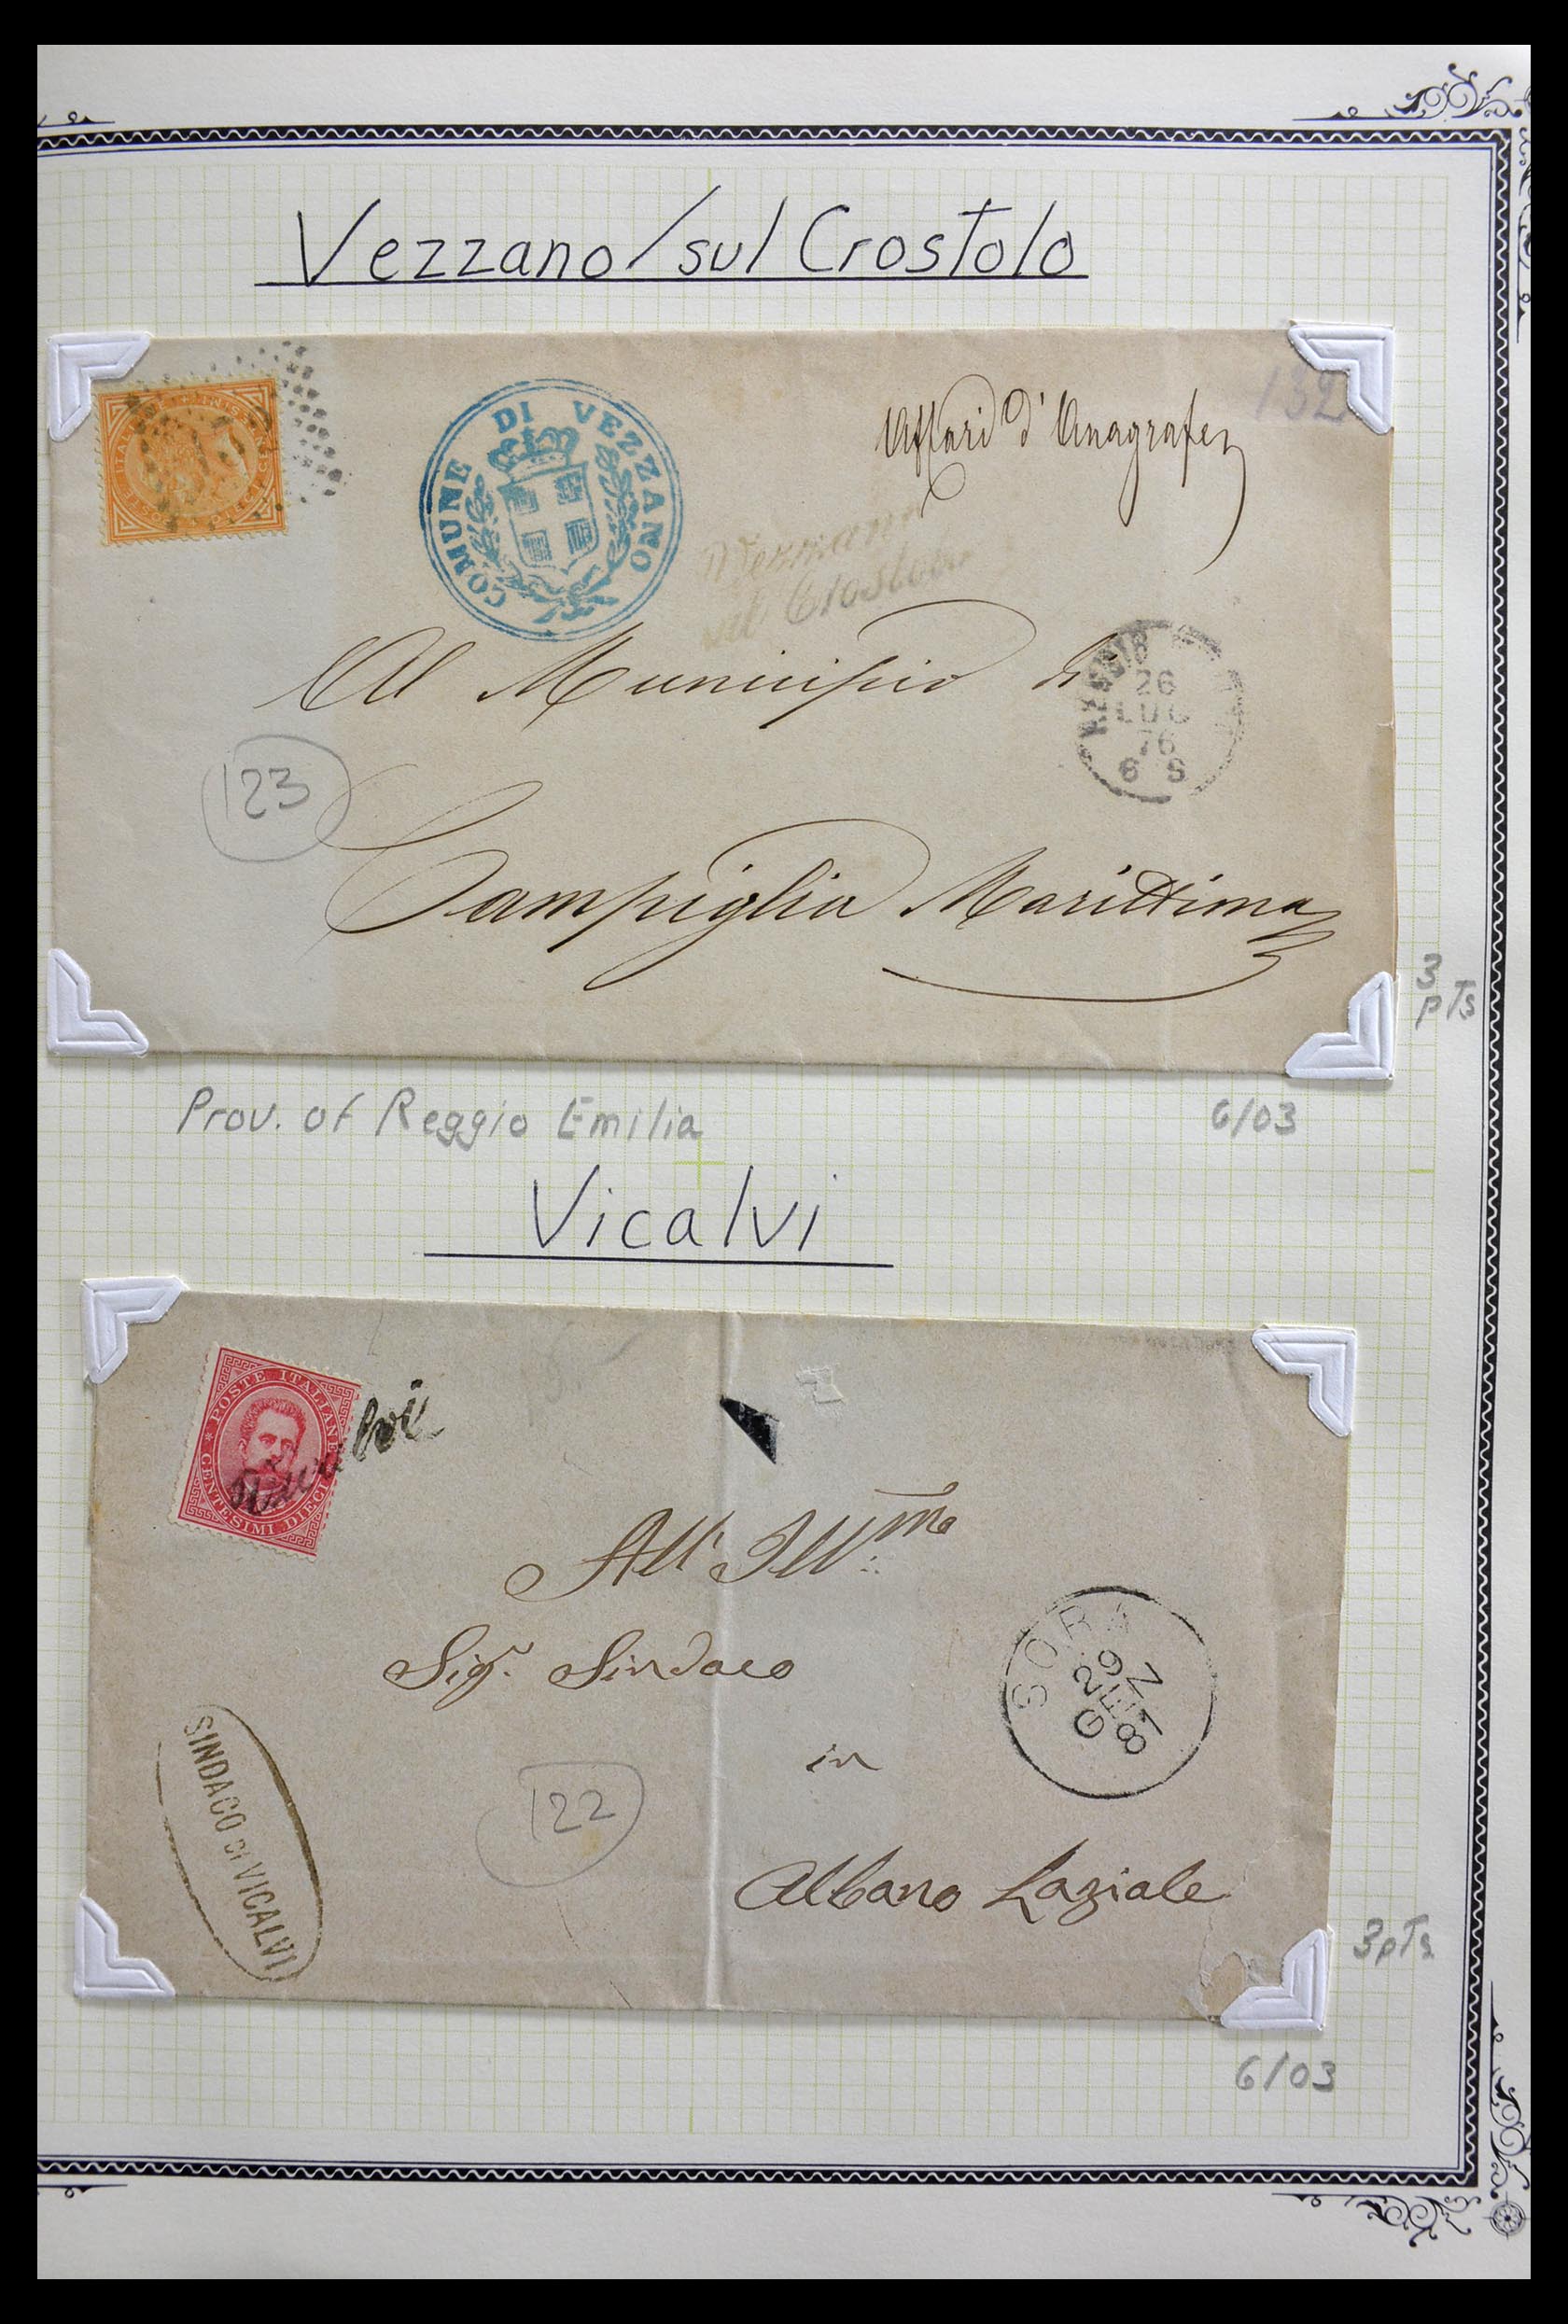 Vezzano/sul Crostolo
132
COMUNE DI VEZZANO
Affari d'Anagrafe
Vezzano
sul Crostolo
Al Municipio di
REGGIO
26
LUG
76
6 S
123
Campiglia Marittima
3
pTs
Prov. of Reggio Emilia
6/03
Vicalvi
POSTE ITALIANE
CENTESIMI DIECI
Vicalvi
All' Ill.mo
Sig.r Sindaco
SORA
29
GEN
87
in
122
Albano Laziale
SINDACO DI VICALVI
3pTs
6/03